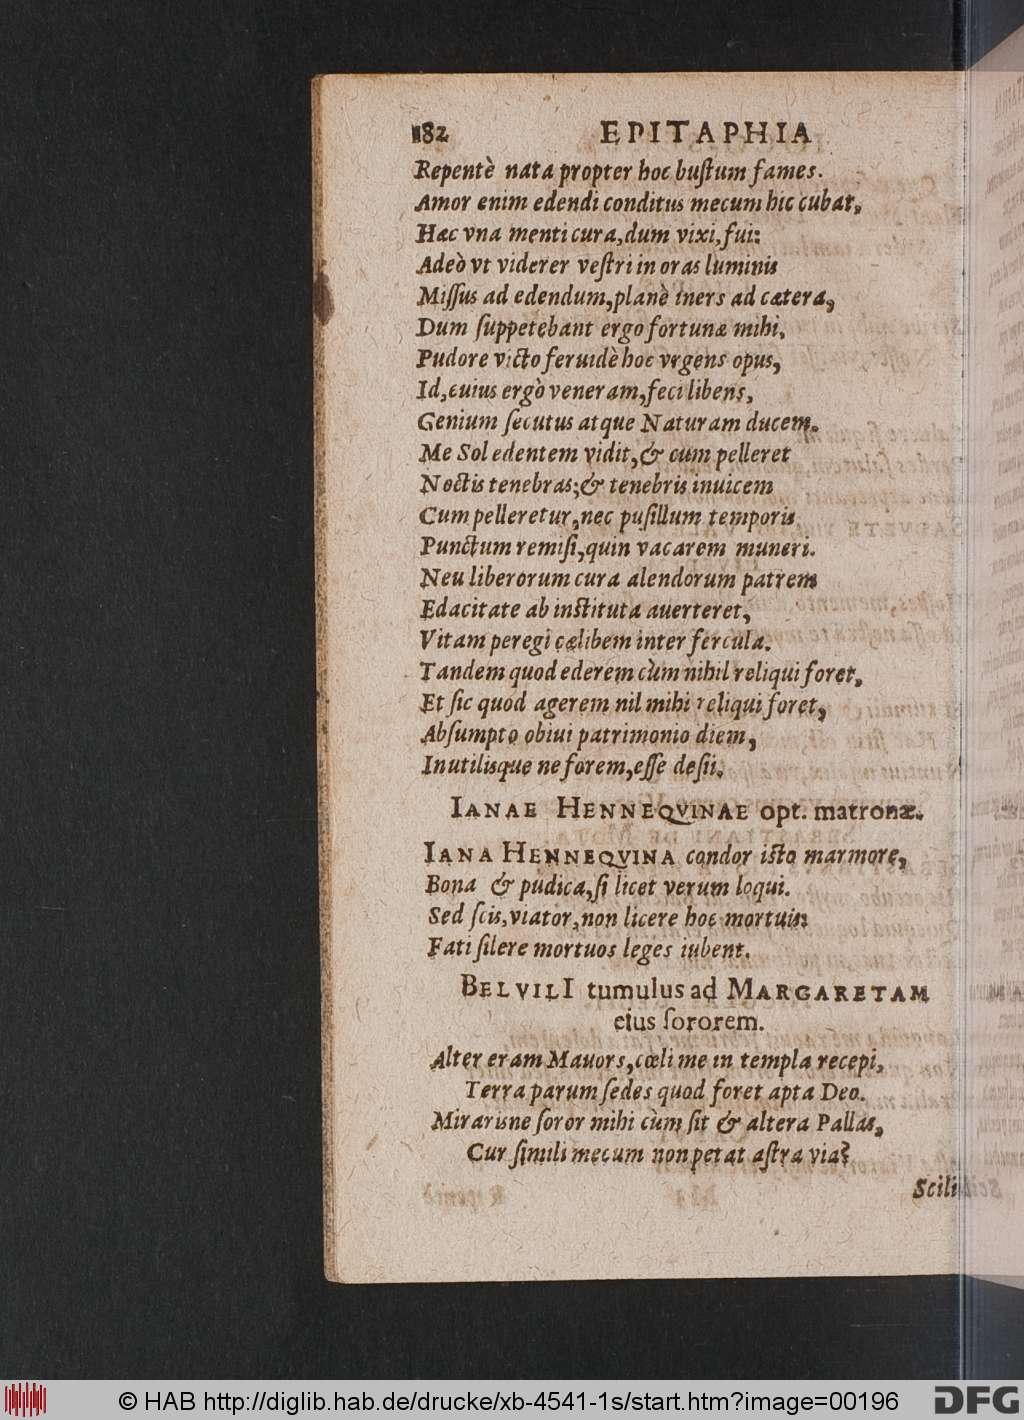 182 EPITAPHIA
Repentè nata propter hoc buſtum fames.
Amor enim edendi conditus mecum hic cubat,
Hæc vna menti cura, dum vixi, fui:
Adeò vt viderer veſtri in oras luminis
Miſſus ad edendum, planè iners ad cætera,
Dum ſuppetebant ergo fortunæ mihi,
Pudore victo feruidè hoc vrgens opus,
Id, cuius ergò veneram, feci libens,
Genium ſecutus atque Naturam ducem.
Me Sol edentem vidit, & cum pelleret
Noctis tenebras; & tenebris inuicem
Cum pelleretur, nec puſillum temporis
Punctum remiſi, quin vacarem muneri.
Neu liberorum cura alendorum patrem
Edacitate ab inſtituta auerteret,
Vitam peregi cælibem inter fercula.
Tandem quod ederem cùm nihil reliqui foret,
Et ſic quod agerem nil mihi reliqui foret,
Abſumpto obiui patrimonio diem,
Inutilisque ne forem, eſſe deſii.
IANAE HENNEQVINAE opt. matronæ.
IANA HENNEQVINA condor iſto marmore,
Bona & pudica, ſi licet verum loqui.
Sed ſcis, viator, non licere hoc mortuis
Fati ſilere mortuos leges iubent.
BELVILI tumulus ad MARGARETAM
eius ſororem.
Alter eram Mauors, cœli me in templa recepi,
Terra parum ſedes quod foret apta Deo.
Mirarisne ſoror mihi cùm ſit & altera Pallas,
Cur ſimili mecum non petat aſtra via?
Scili
© HAB http://diglib.hab.de/drucke/xb-4541-1s/start.htm?image=00196
DFG